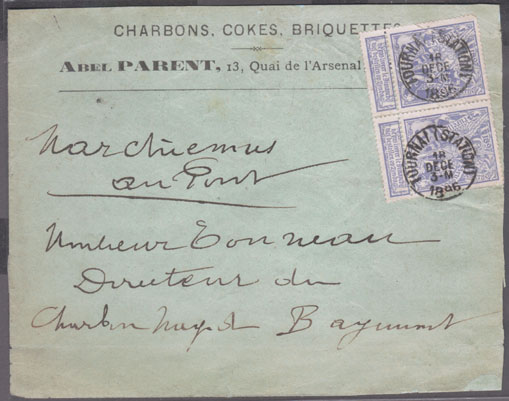 CHARBONS, COKES, BRIQUETTES
ABEL PARENT, 13, Quai de l'Arsenal
TOURNAI (STATION)
18
DECE
1896
TOURNAI (STATION)
18
DECE
3-M
1896
Marchiennes
au Pont
Monsieur Tonneau
Directeur du
Charbonnage de Bayemont